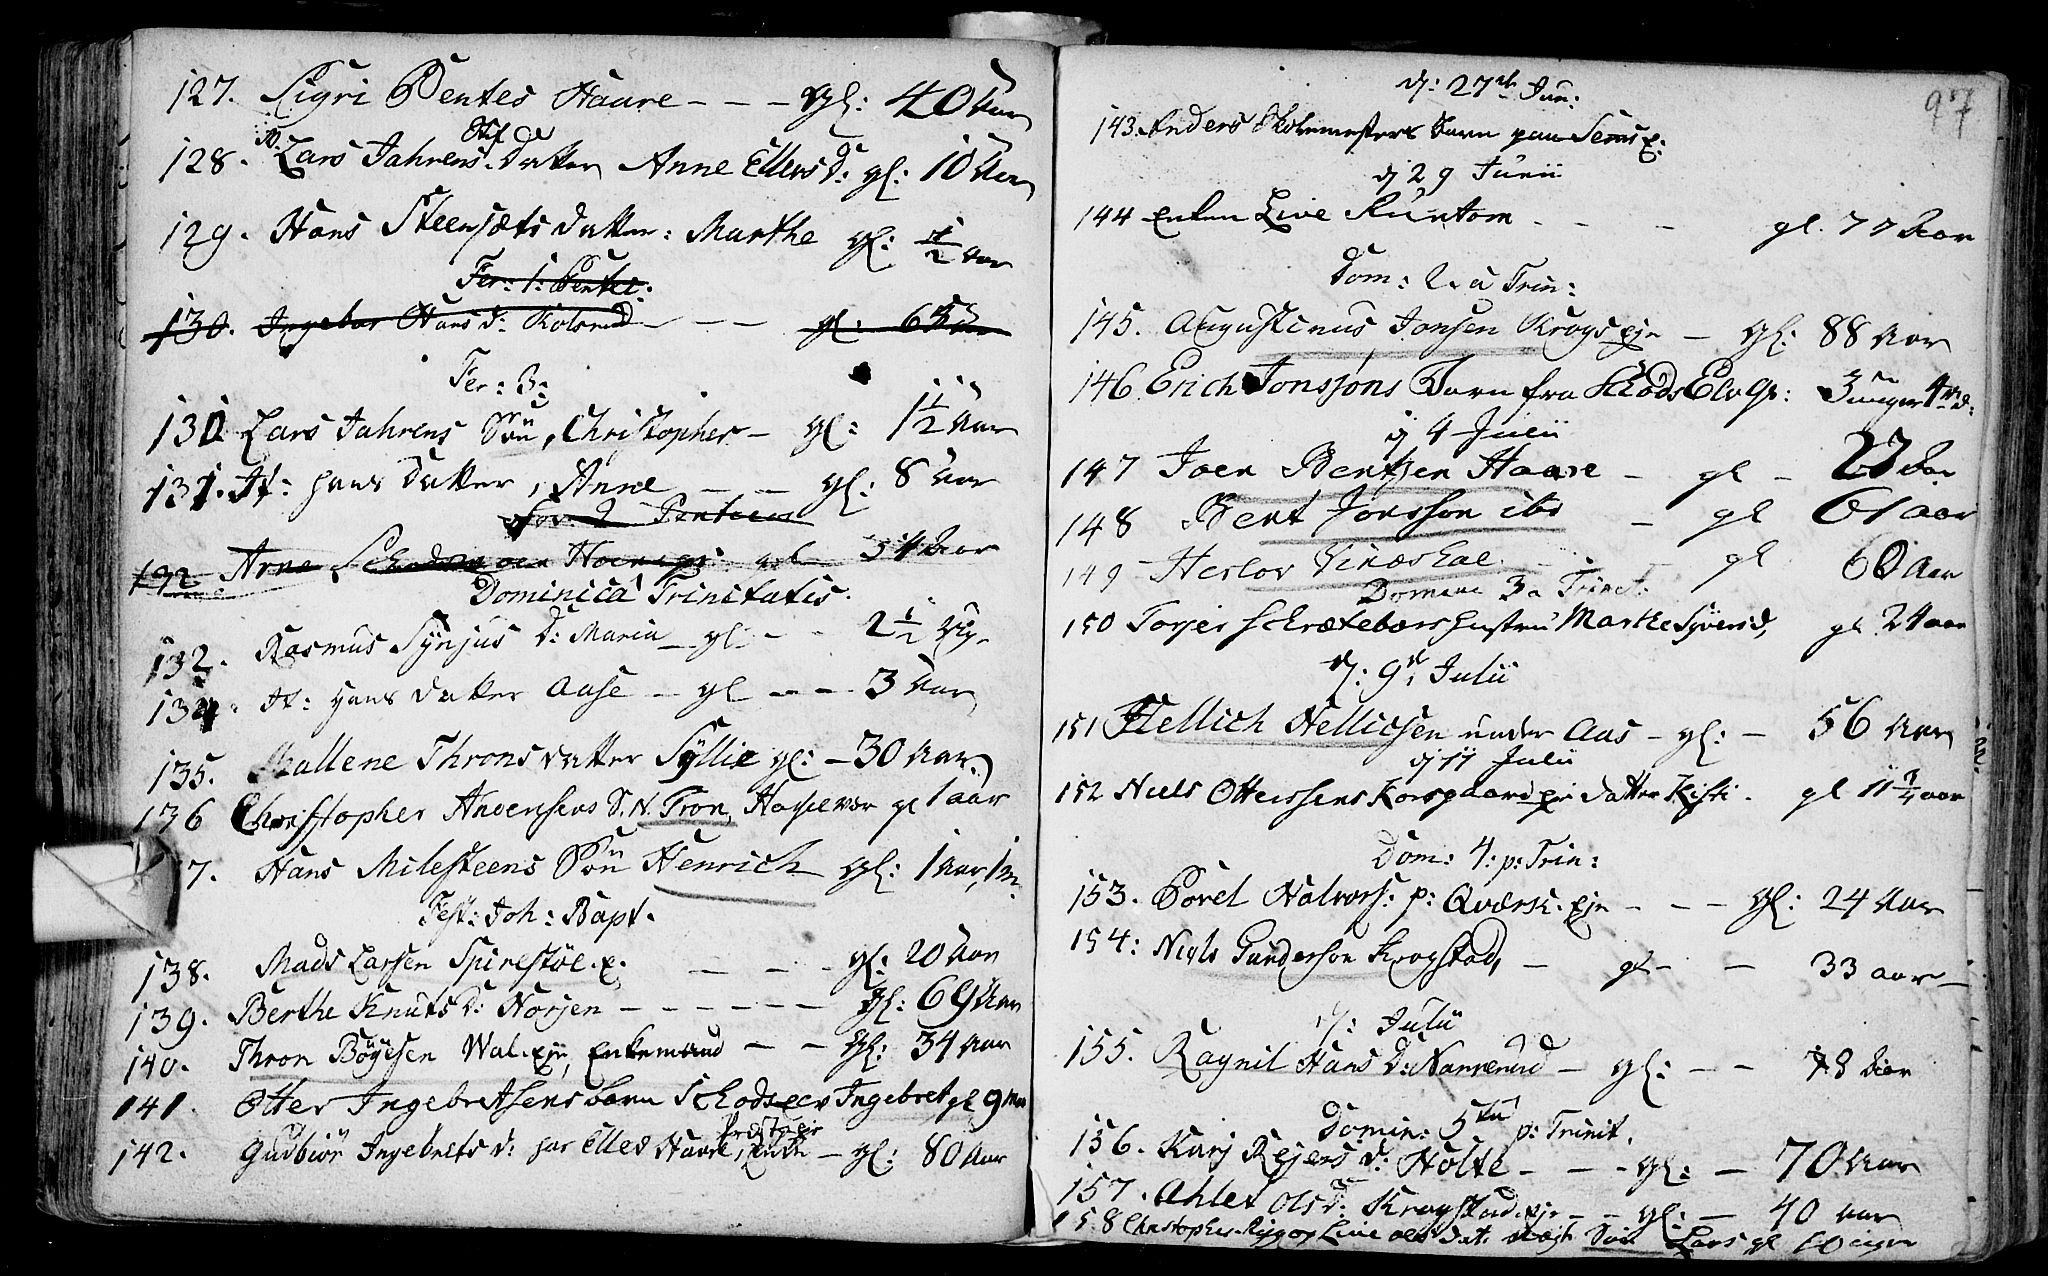 127. Sigri Bentes Haare - - - gl: 40 Aar
Stif
128. Lars Jahrens Datter Anne Ellers D: gl: 10 Aar
129. Hans Steensæts Datter: Marthe gl: ½ Aar
Fer: 1: Pentec:
130. Ingebor Hans d: Kolsrud - - - gl: 65 Aar
Fer: 3:
131 Lars Jahrens Søn, Christopher - gl: 1½ Aar
131. It: hans Datter, Anne - - gl: 8 Aar
Fer 2 Pentecos
132 Arne gl 54 Aar
Dominica Trinitatis.
132. Rasmus Synjus D: Maria - gl - - 2½ Ug.
134. It: hans datter Aase - gl - - - 3 Aar
135. Mallene Throns datter Syllie gl: - 30 Aar
136 Christopher Andersens S. N. Tron, Hasselvær gl 1 aar
7. Hans Milesteens Søn Henrich gl: 1 Aar, 1 m.
Fest: Joh: Bapt.
138. Mads Larsen Spirestøl. x. - - - gl: 20 Aar
139. Berthe Knuts D: Norjen - - - - - - gl: 69 Aar
140. Thron Böyesen Wal. eje, Enkemand - - gl: 34 Aar
141. Otter Ingebretsens barn Skodseier Ingebret gl 9 Md
142. Gudbiör Ingebrets d: paa Elles Haare, Enke - gl: 80 Aar
97
d: 27de Jun:
143. Anders Skolemesters Barn paa Sems E:
d 29 Junii
144 Enken Live Runtom - - - gl. 77 Aar
Dom: 2. a Trin:
145. Augustinus Jonsen Krogs eje - gl: 88 Aar
146. Erich Jonssöns Barn fra Skods Elv gl: 3 uger 4 d:
d 4 Julii
147 Joen Bentsen Haare - gl - 23 Aar
148 Bent Jonsson ibd - gl 61 aar
149 Herlov Vinæskal - - gl 60 Aar
Domin 3 a Trinit:
150 Torjer Skrætebærs Hustru Marthe Syvers d, gl. 24 aar
d: 9de Julii
151 Hellich Hellicsen under Aas - gl: - 56 Aar
d 11 Julii
152 Niels Ottersens Korsgaard eje datter Kisti. gl 11¾ aar
Dom: 4: p: Trin:
153. Borel Halvors: p: Qværsk. Eje - - - gl: 24 Aar
154: Niels Gunderson Krogstad, - gl - - 33 aar -
d: Julii
155. Ragnil Hans D: Narverud - gl: - - 78 Aar
Domin: 5ta p: Trinit.
156. Karj Rejers d: Holte - - - gl: - 70 Aar
157. Ahlet Ols D: Krogstad eje - - gl: - 40 Aar
158 Christopher Rigg og Live Ols Dat. Søn Lars gl 10 uger